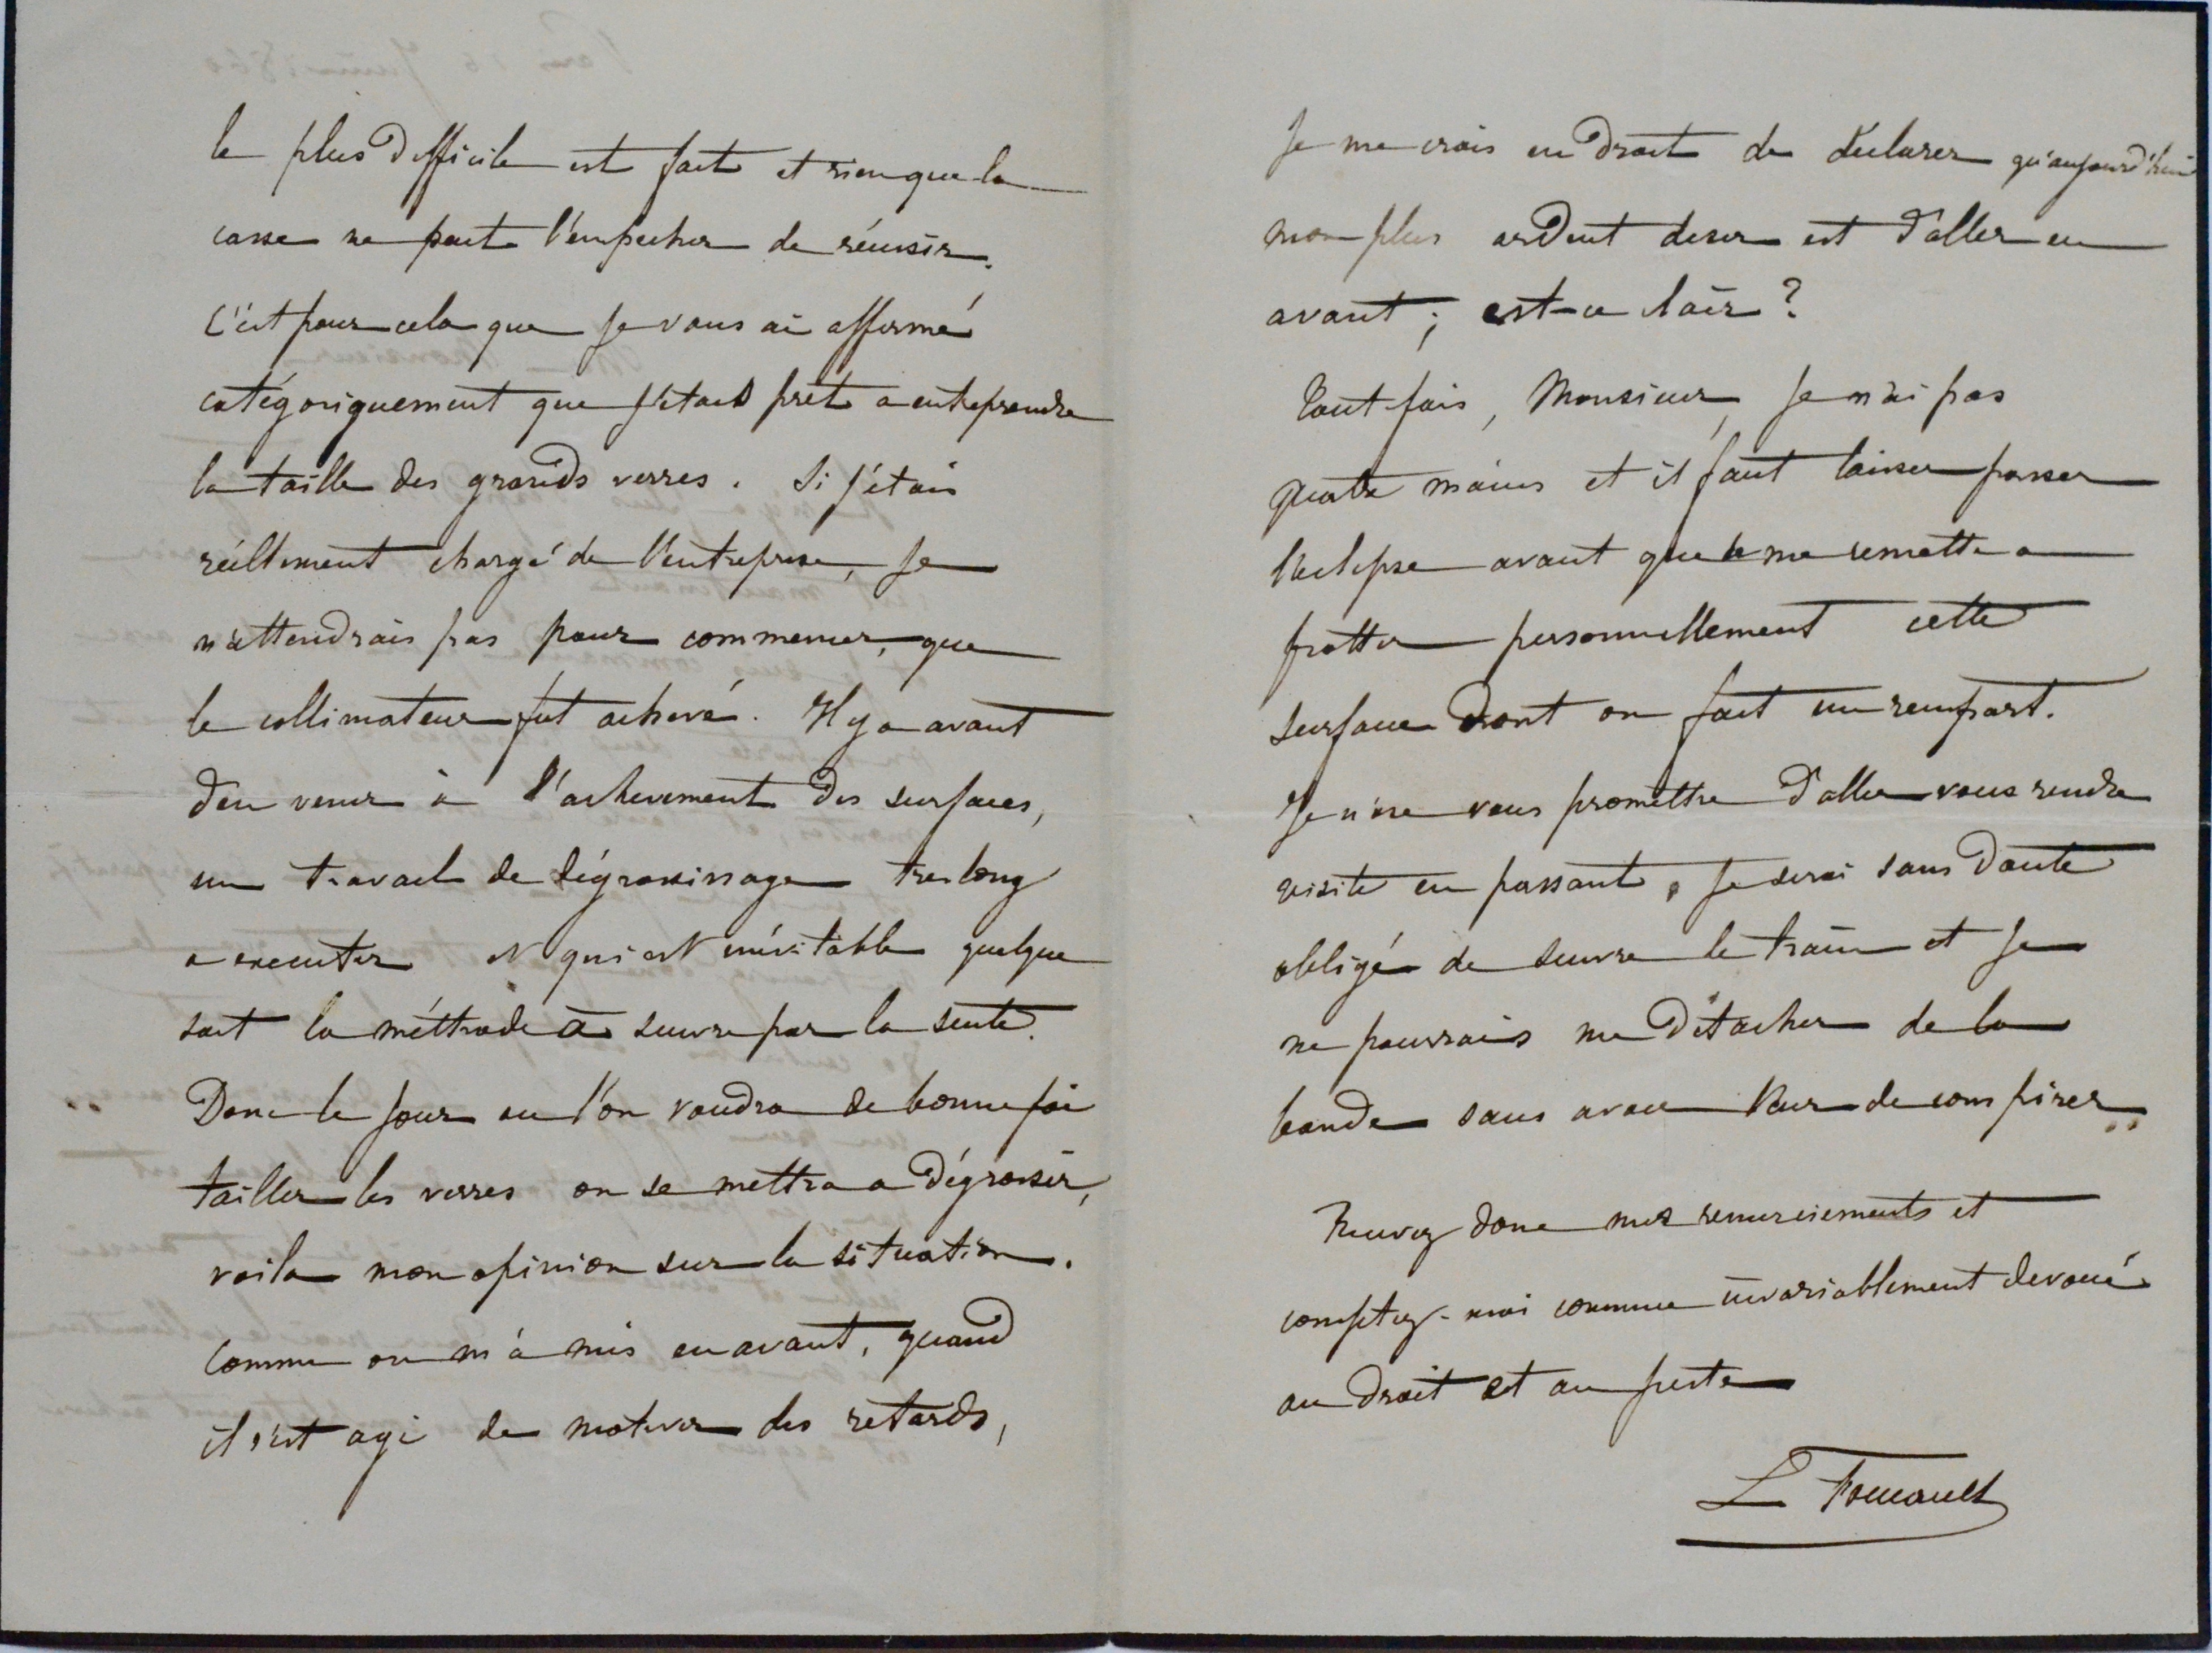 le plus difficile est fait et rien que la
casse ne peut l'empecher de réussir.
C'est pour cela que je vous ai affirmé
catégoriquement que j'étais prêt a entreprendre
la taille des grands verres. Si j'étais
réellement chargé de l'entreprise, je
n'attendrais pas pour commencer, que
le collimateur fut achevé. Il y a avant
d'en venir à l'achevement des surfaces,
un travail de dégrossissage tres long
a executer et qui est inévitable quelque
soit la méthode à suivre par la suite.
Donc le jour ou l'on voudra de bonne foi
tailler les verres on se mettra a dégrossir,
voila mon opinion sur la situation.
Comme on m'a mis en avant, quand
il s'est agi de motiver des retards,
Je me crois en droit de déclarer qu'aujourd'hui
mon plus ardent desir est d'aller en
avant; est-ce clair?
Toutefois, Monsieur, je n'ai pas
quatre mains et il faut laisser passer
l'eclipse avant que je me remette a
frotter personnellement cette
surface dont on fait un rempart.
Je n'ose vous promettre d'aller vous rendre
visite en passant, je serai sans doute
obligé de suivre le train et je
ne pourrais me détacher de la
bande sans avoir l'air de conspirer..
Recevez donc mes remerciements et
comptez-moi comme invariablement devoué
au droit et au juste
L Foucault